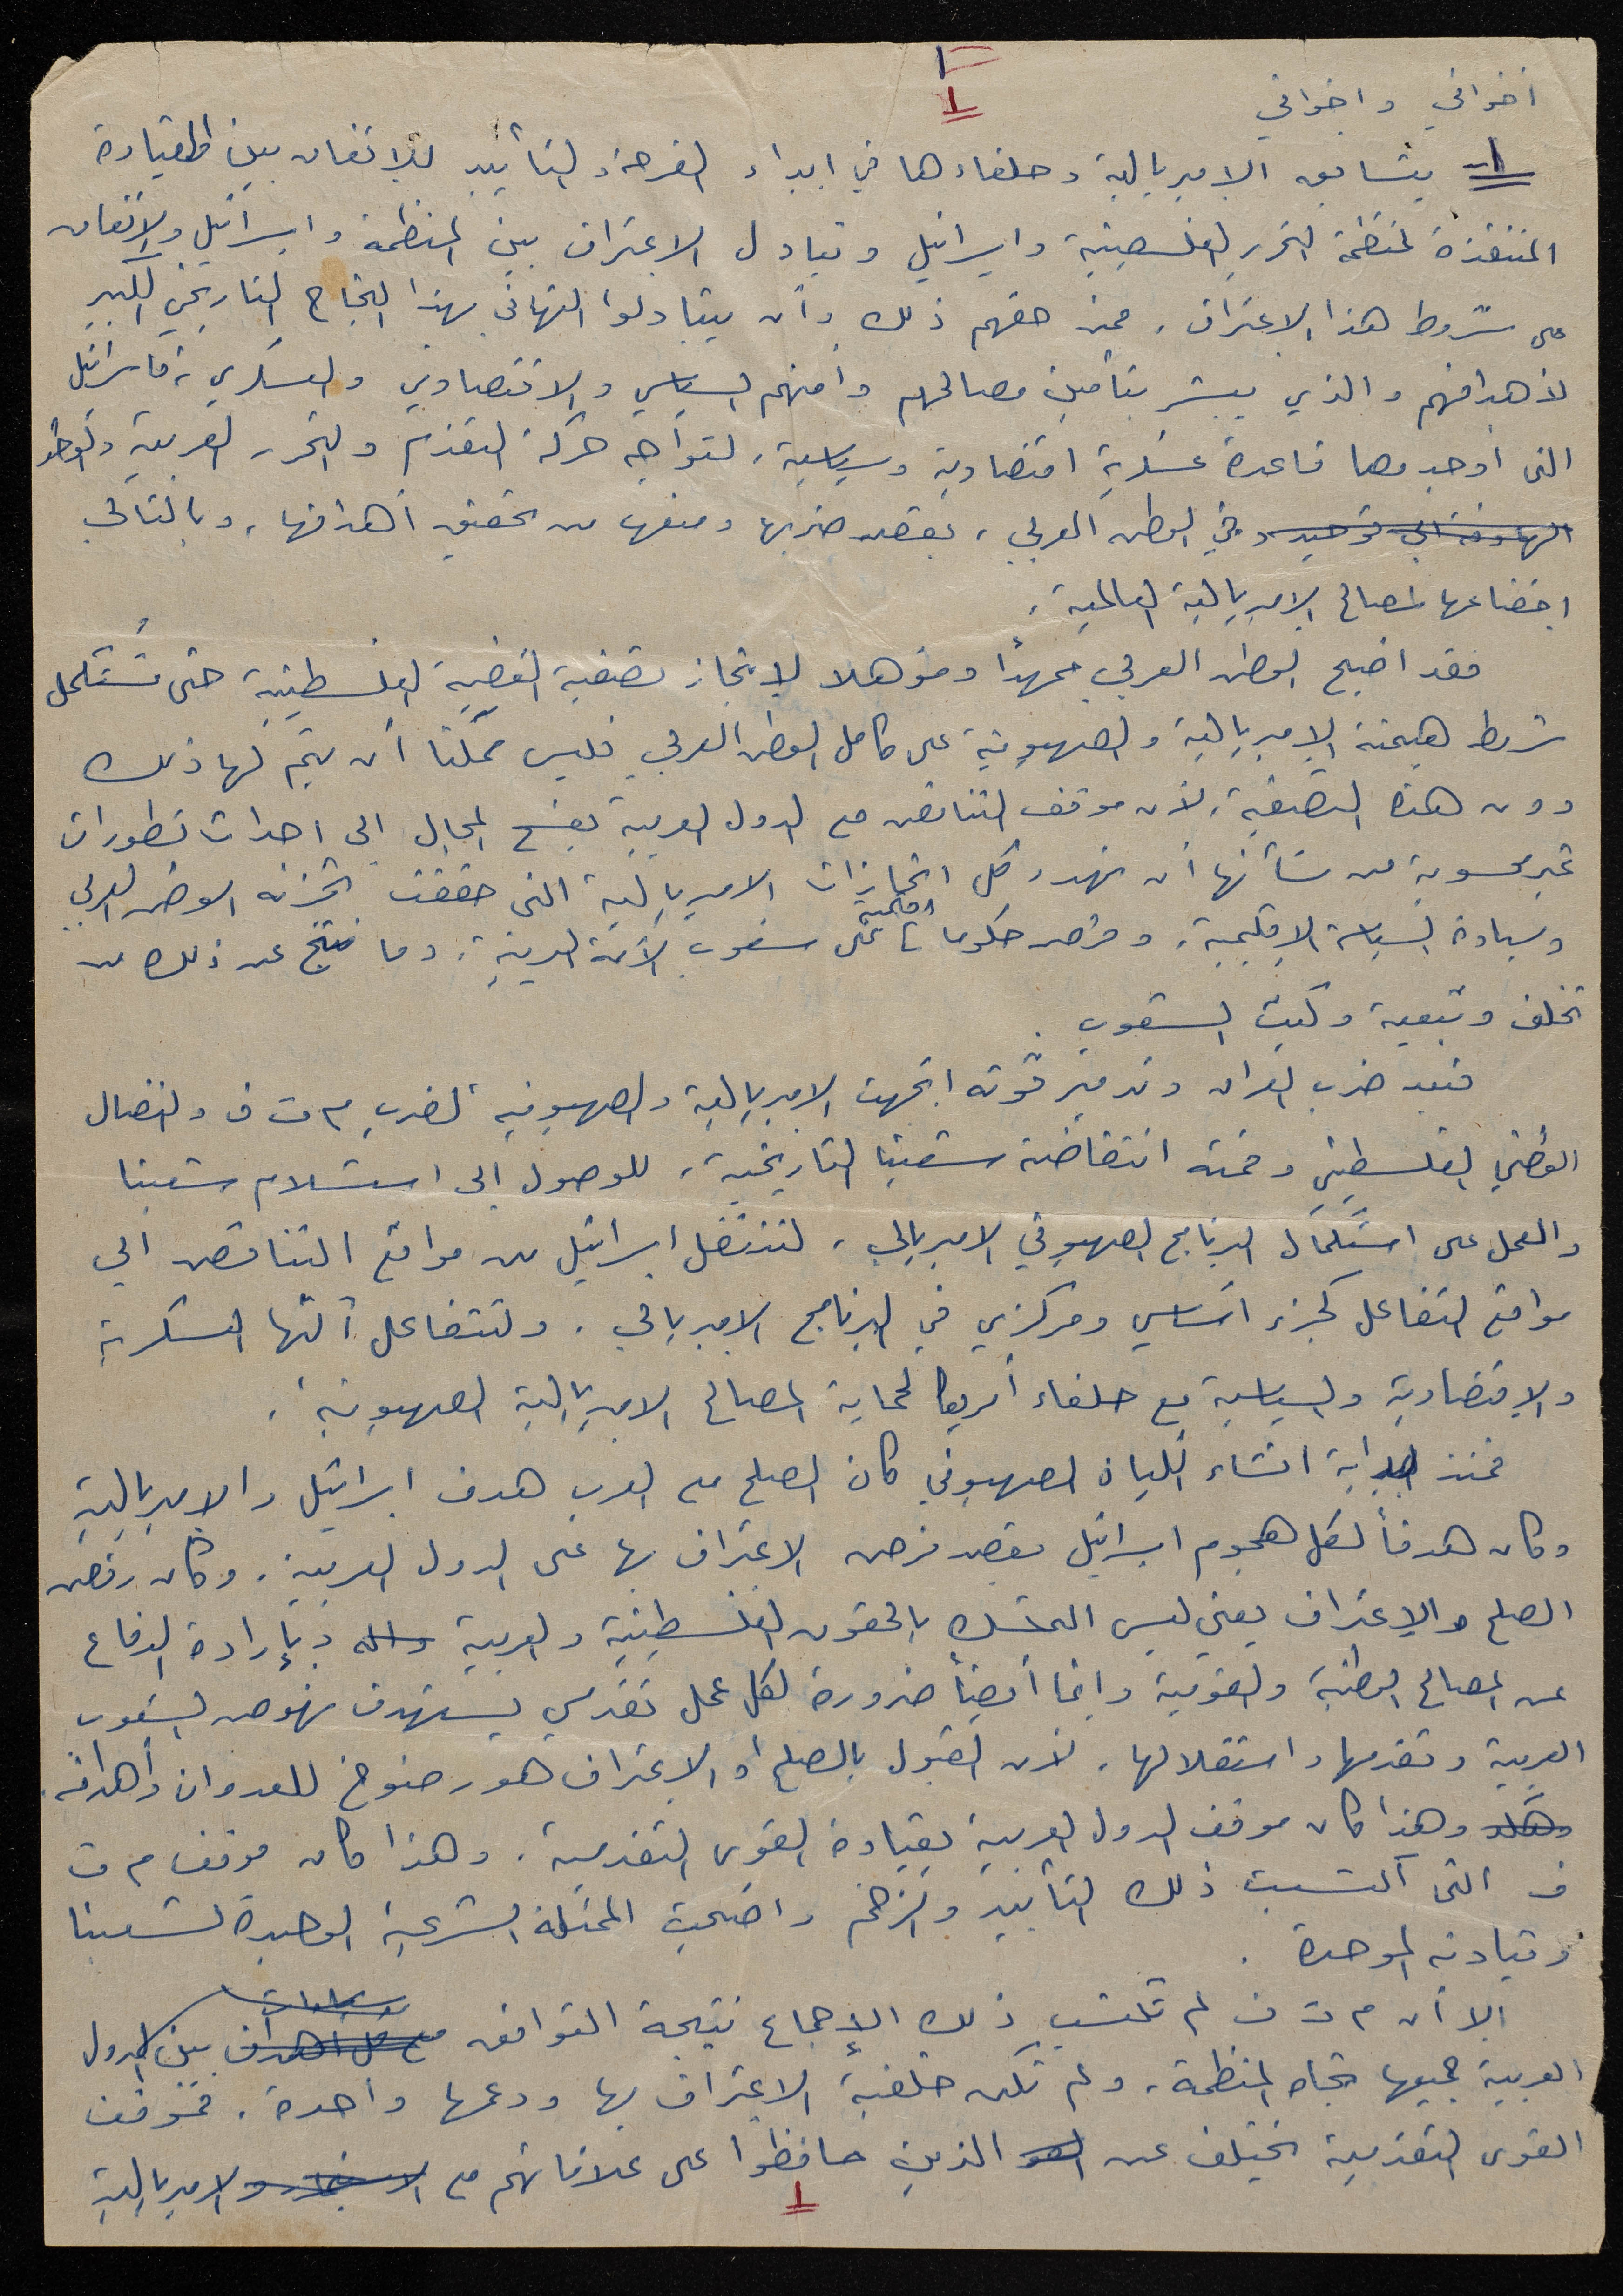 ١
1
اخواني واخواتي
١- يتسابق الامبريالية وحلفاءها في ابداء الفرحة والتأييد للاتفاق بين القيادة
المتنفذة لمنظمة التحرير الفلسطينية واسرائيل وتبادل الاعتراف بين المنظمة واسرائيل والاتفاق
على شروط هذا الاعتراف، فمن حقهم ذلك وأن يتبادلوا التهاني بهذا النجاح التاريخي الكبير
لأهدافهم والذي يبشر بتأمين مصالحهم وأمنهم السياسي والاقتصادي والعسكري، فاسرائيل
التي أوجدوها قاعدة عسكرية اقتصادية وسياسية، لتواجه حركة التقدم والتحرر العربية
في الوطن العربي، بقصد ضربها ومنعها من تحقيق أهدافها، وبالتالي
اخضاعها لمصالح الامبريالية العالمية.
فقد اصبح الوطن العربي ممهدًا ومؤهلا لانجاز تصفية القضية الفلسطينية حتى تُستكمل
شروط هيمنة الامبريالية والصهيونية على كامل الوطن العربي فليس ممكنا أن يتم لها ذلك
دون هذه التصفية، لأن موقف التناقض مع الدول العربية يفسح المجال الى احداث تطورات
غير محسوبة من شأنها أن تهدد كل انجازات الامبريالية التي حققت تجزئة الوطن العربي
وسيادة السياسة الاقليمية، وفرض حكومات اقليمية على شعوب الأمة العربية، وما نتج عن ذلك من
تخلف وتبعية وكبت الشعوب.
فبعد ضرب العراق وتدمير قوته اتجهت الامبريالية والصهيونية لضرب م ت ف والنضال
الوطني الفلسطيني وقمة انتفاضة شعبنا التاريخية، للوصول الى استسلام شعبنا
والعمل على استكمال البرنامج الصهيوني الامبريالي، لتنتقل اسرائيل من مواقع التناقض الى
مواقع التفاعل كجزء اساسي ومركزي في البرنامج الامبريالي، ولتتفاعل آلتها العسكرية
والاقتصادية والسياسية مع حلفاء أمريكا لحماية المصالح الامبريالية الصهيونية.
فمنذ بداية انشاء الكيان الصهيوني كان الصلح مع العرب هدف اسرائيل والامبريالية
وكان هدفاً لكل هجوم اسرائيل بقصد فرض الاعتراف بها على الدول العربية. وكان رفض
الصلح والاعتراف يعني ليس التمسك بالحقوق الفلسطينية والعربية وبإرادة الدفاع
عن المصالح الوطنية والقومية وانما أيضاً ضرورة لكل عمل تقدمي يستهدف نهوض الشعوب
العربية وتقدمها واستقلالها، لأن القبول بالصلح أو الاعتراف هو رضوخ للعدوان وأهدافه.
وهذا كان موقف الدول العربية بقيادة القوى التقدمية. وهذا كان موقف م ت
ف التي اكتسبت ذلك التأييد والزخم واضحت الممثلة الشرعية الوحيدة لشعبنا
وقيادته الموحدة.
الا أن م ت ف لم تكتسب ذلك الإجماع نتيجة التوافق بين الدول
العربية جميعها تجاه المنظمة، ولم تكن خلفية الاعتراف بها ودعمها واحدة. فموقف
القوى التقدمية يختلف عن الذين حافظوا على علاقاتهم مع الامبريالية
1